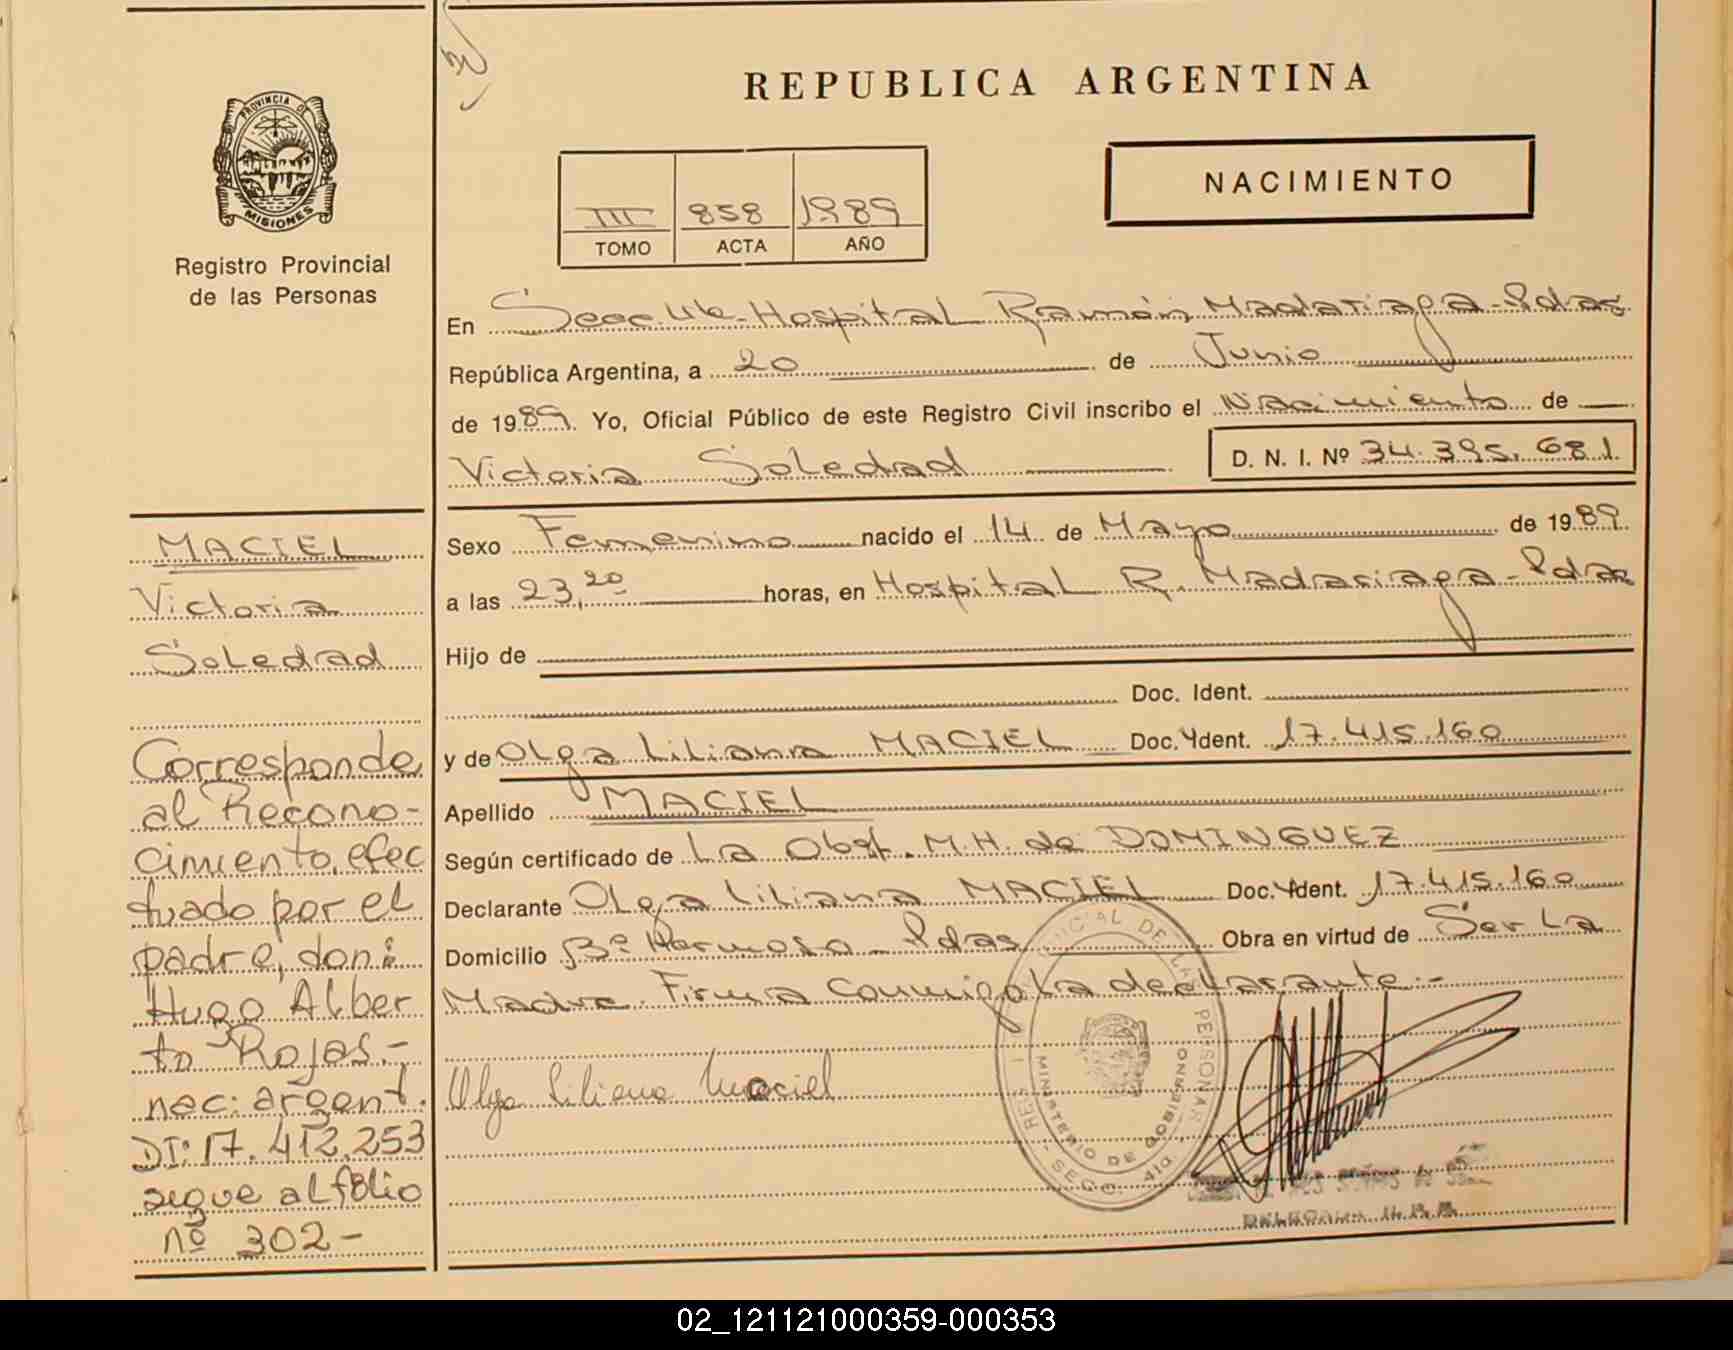 REPUBLICA ARGENTINA
PROVINCIA DE
MISIONES
Registro Provincial
de las Personas
NACIMIENTO
III 858 1989
TOMO ACTA AÑO
En Secc. 4ta. Hospital Ramón Madariaga - Pdas
República Argentina, a 20 de Junio
de 1989. Yo, Oficial Público de este Registro Civil inscribo el Nacimiento de
Victoria Soledad D. N. I. Nº 34.395.681.
Sexo Femenino nacido el 14 de Mayo de 1989
a las 23,20 horas, en Hospital R. Madariaga - Pdas
Hijo de
Doc. Ident.
y de Olga Liliana MACIEL Doc. Ident. 17.415.160
Apellido MACIEL
Según certificado de La Obst. M.H. de DOMINGUEZ
Declarante Olga Liliana MACIEL Doc. Ident. 17.415.160
Domicilio Bº Hermoso - Pdas Obra en virtud de Ser La
Madre. Firma conmigo la declarante.-
Olga Liliana Maciel
MINISTERIO DE GOBIERNO
SECC. 4ta.
MACIEL
Victoria
Soledad
Corresponde
al Recono-
cimiento efec
tuado por el
padre, don:
Hugo Alber
to Rojas.-
nac: argent.
DI: 17.412.253
sigue al folio
nº 302-
02_121121000359-000353